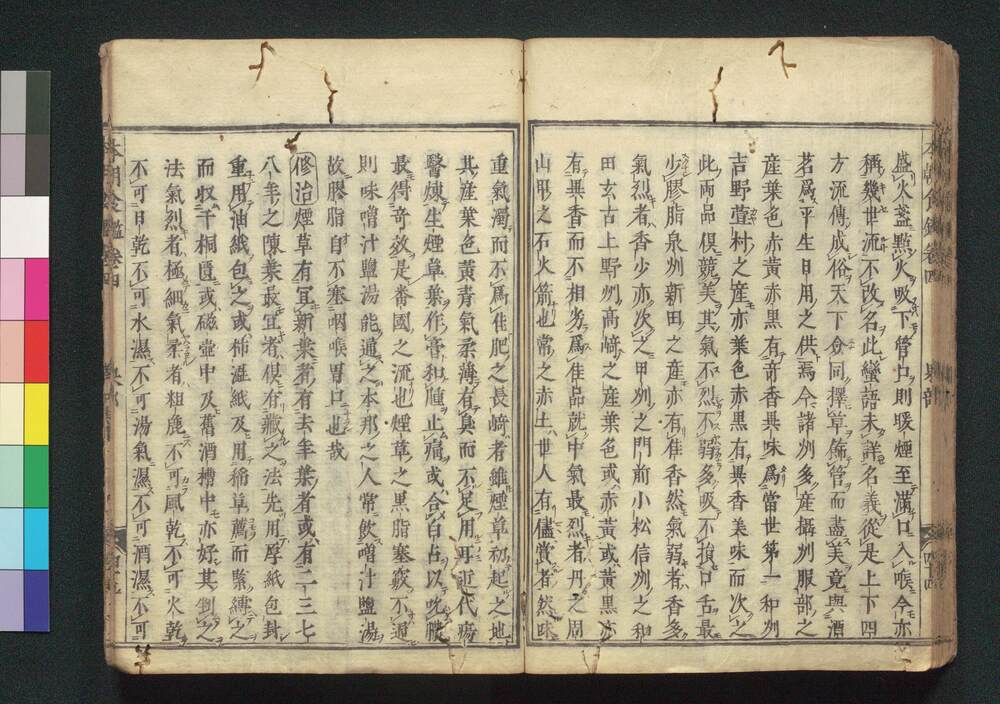 盛火盞點火吸下管口則暖煙至滿口入喉今亦
稱幾世流不改名此蠻語未詳名義從是上下四
方流傳成俗天下僉同擇草飾管而盡美竟與酒
茗爲平生日用之供焉今諸州多產攝州服部之
產葉色赤黃赤黑有奇香異味爲當世第一和州
吉野萱村之產亦葉色赤黑有異香美味而次之
此兩品俱競美其氣不烈不弱多吸不損口舌最
少膠脂泉州新田之產亦有佳香然氣弱者香多
氣烈者香少亦次之甲州之門前小松信州之和
田玄古上野州高崎之產葉色或赤黃或黃黑亦
有異香而不相劣爲佳品就中氣最烈者丹之周
山甲之石火箭也常之赤土世人有儘賞者然味
重氣濁而不爲佳肥之長崎者雖煙草初起之地
其產葉色黃青氣柔薄有臭而不足用耳近代瘍
醫煉生煙草葉作膏和腫止痛或合白占以吮膿
最得奇效是番國之流也煙草之黑脂塞竅不通
則味噌汁鹽湯能通之本邦之人常飲噌汁鹽湯
故膠脂自不塞咽喉胃口也哉
修治煙草有宜新葉者有去年葉者或有二三七
八年之陳葉最宜者俱有藏之法先用厚紙包封
重用油紙包之或柿澁紙及用稻草薦而緊縛之
而收干桐匱或磁壺中及舊酒槽中亦好其剉之
法氣烈者極細氣柔者粗麁不可風乾不可火乾
不可日乾不可水濕不可湯氣濕不可酒濕不可
本朝食鑑卷四